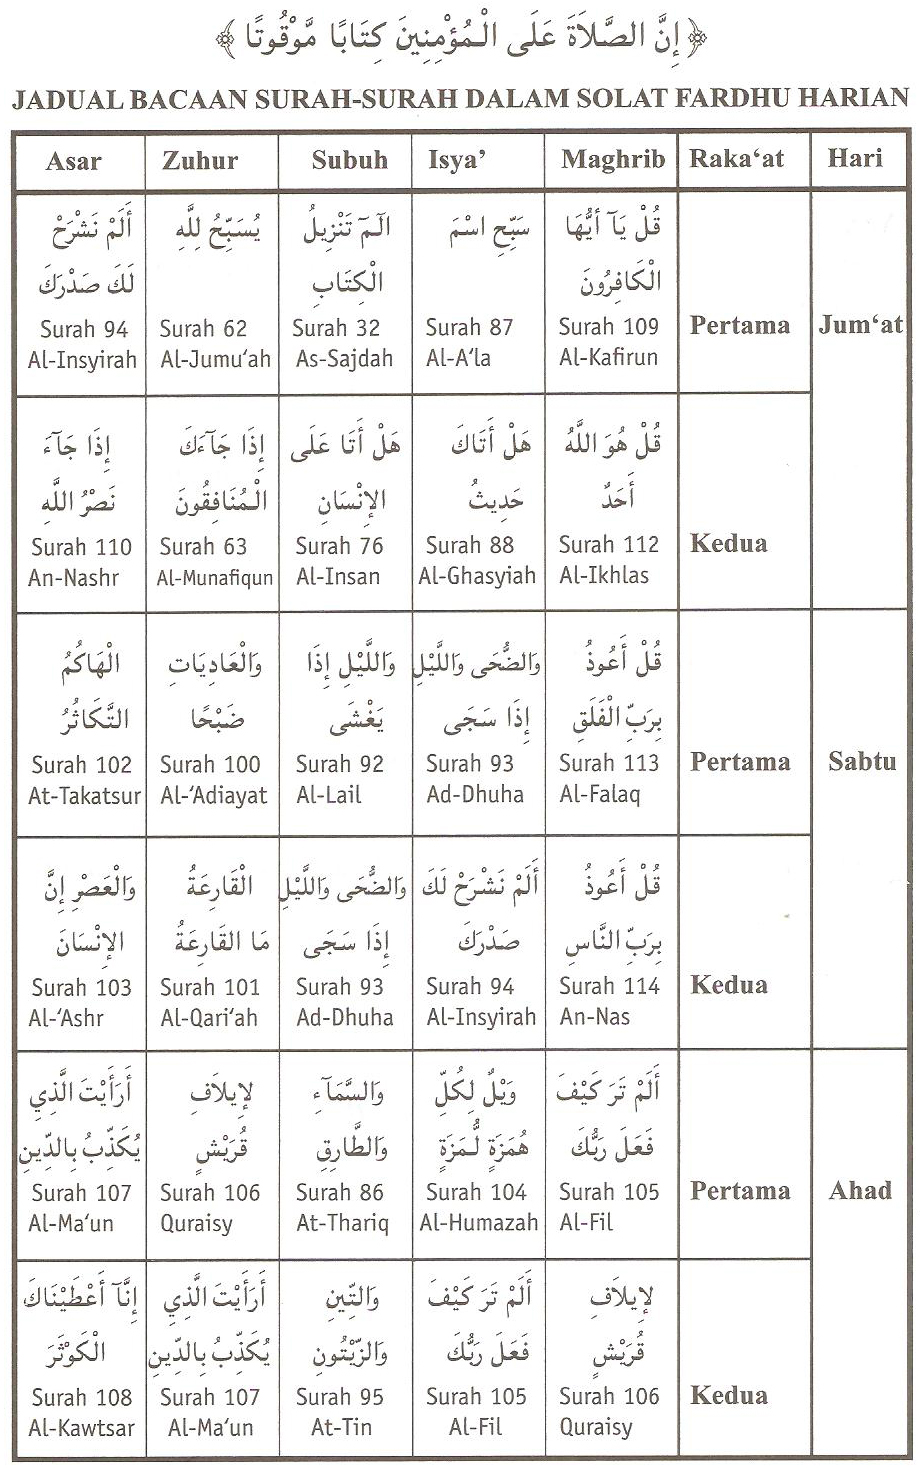 ﴿ إِنَّ الصَّلَاةَ عَلَى الْمُؤْمِنِينَ كِتَابًا مَّوْقُوتًا ﴾
JADUAL BACAAN SURAH-SURAH DALAM SOLAT FARDHU HARIAN
Asar Zuhur Subuh Isya’ Maghrib Raka‘at Hari
أَلَمْ نَشْرَحْ
لَكَ صَدْرَكَ
Surah 94
Al-Insyirah
يُسَبِّحُ لِلَّهِ
Surah 62
Al-Jumu‘ah
الٓمٓ تَنْزِيلُ
الْكِتَابِ
Surah 32
As-Sajdah
سَبِّحِ اسْمَ
Surah 87
Al-A‘la
قُلْ يَآ أَيُّهَا
الْكَافِرُونَ
Surah 109
Al-Kafirun
Pertama
Jum‘at
إِذَا جَآءَ
نَصْرُ اللَّهِ
Surah 110
An-Nashr
إِذَا جَآءَكَ
الْمُنَافِقُونَ
Surah 63
Al-Munafiqun
هَلْ أَتَا عَلَى
الإِنْسَانِ
Surah 76
Al-Insan
هَلْ أَتَاكَ
حَدِيثُ
Surah 88
Al-Ghasyiah
قُلْ هُوَ اللَّهُ
أَحَدٌ
Surah 112
Al-Ikhlas
Kedua
الْهَاكُمُ
التَّكَاثُرُ
Surah 102
At-Takatsur
وَالْعَادِيَاتِ
ضَبْحًا
Surah 100
Al-‘Adiayat
وَاللَّيْلِ إِذَا
يَغْشَى
Surah 92
Al-Lail
وَالضُّحَى وَاللَّيْلِ
إِذَا سَجَى
Surah 93
Ad-Dhuha
قُلْ أَعُوذُ
بِرَبِّ الْفَلَقِ
Surah 113
Al-Falaq
Pertama
Sabtu
وَالْعَصْرِ إِنَّ
الإِنْسَانَ
Surah 103
Al-‘Ashr
الْقَارِعَةُ
مَا القَارِعَةُ
Surah 101
Al-Qari‘ah
وَالضُّحَى وَاللَّيْلِ
إِذَا سَجَى
Surah 93
Ad-Dhuha
أَلَمْ نَشْرَحْ لَكَ
صَدْرَكَ
Surah 94
Al-Insyirah
قُلْ أَعُوذُ
بِرَبِّ النَّاسِ
Surah 114
An-Nas
Kedua
أَرَأَيْتَ الَّذِي
يُكَذِّبُ بِالدِّينِ
Surah 107
Al-Ma‘un
لإِيلاَفِ
قُرَيْشٍ
Surah 106
Quraisy
وَالسَّمَآءِ
وَالطَّارِقِ
Surah 86
At-Thariq
وَيْلٌ لِكُلِّ
هُمَزَةٍ لُّمَزَةٍ
Surah 104
Al-Humazah
أَلَمْ تَرَ كَيْفَ
فَعَلَ رَبُّكَ
Surah 105
Al-Fil
Pertama
Ahad
إِنَّآ أَعْطَيْنَاكَ
الْكَوْثَرَ
Surah 108
Al-Kawtsar
أَرَأَيْتَ الَّذِي
يُكَذِّبُ بِالدِّينِ
Surah 107
Al-Ma‘un
وَالتِّينِ
وَالزَّيْتُونِ
Surah 95
At-Tin
أَلَمْ تَرَ كَيْفَ
فَعَلَ رَبُّكَ
Surah 105
Al-Fil
لإِيلاَفِ
قُرَيْشٍ
Surah 106
Quraisy
Kedua